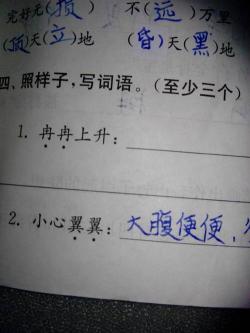 完好无(损) 不(远)万里
(顶)天(立)地 (昏)天(黑)地
四、照样子，写词语。（至少三个）
1. 冉冉上升：
2. 小心翼翼：大腹便便，